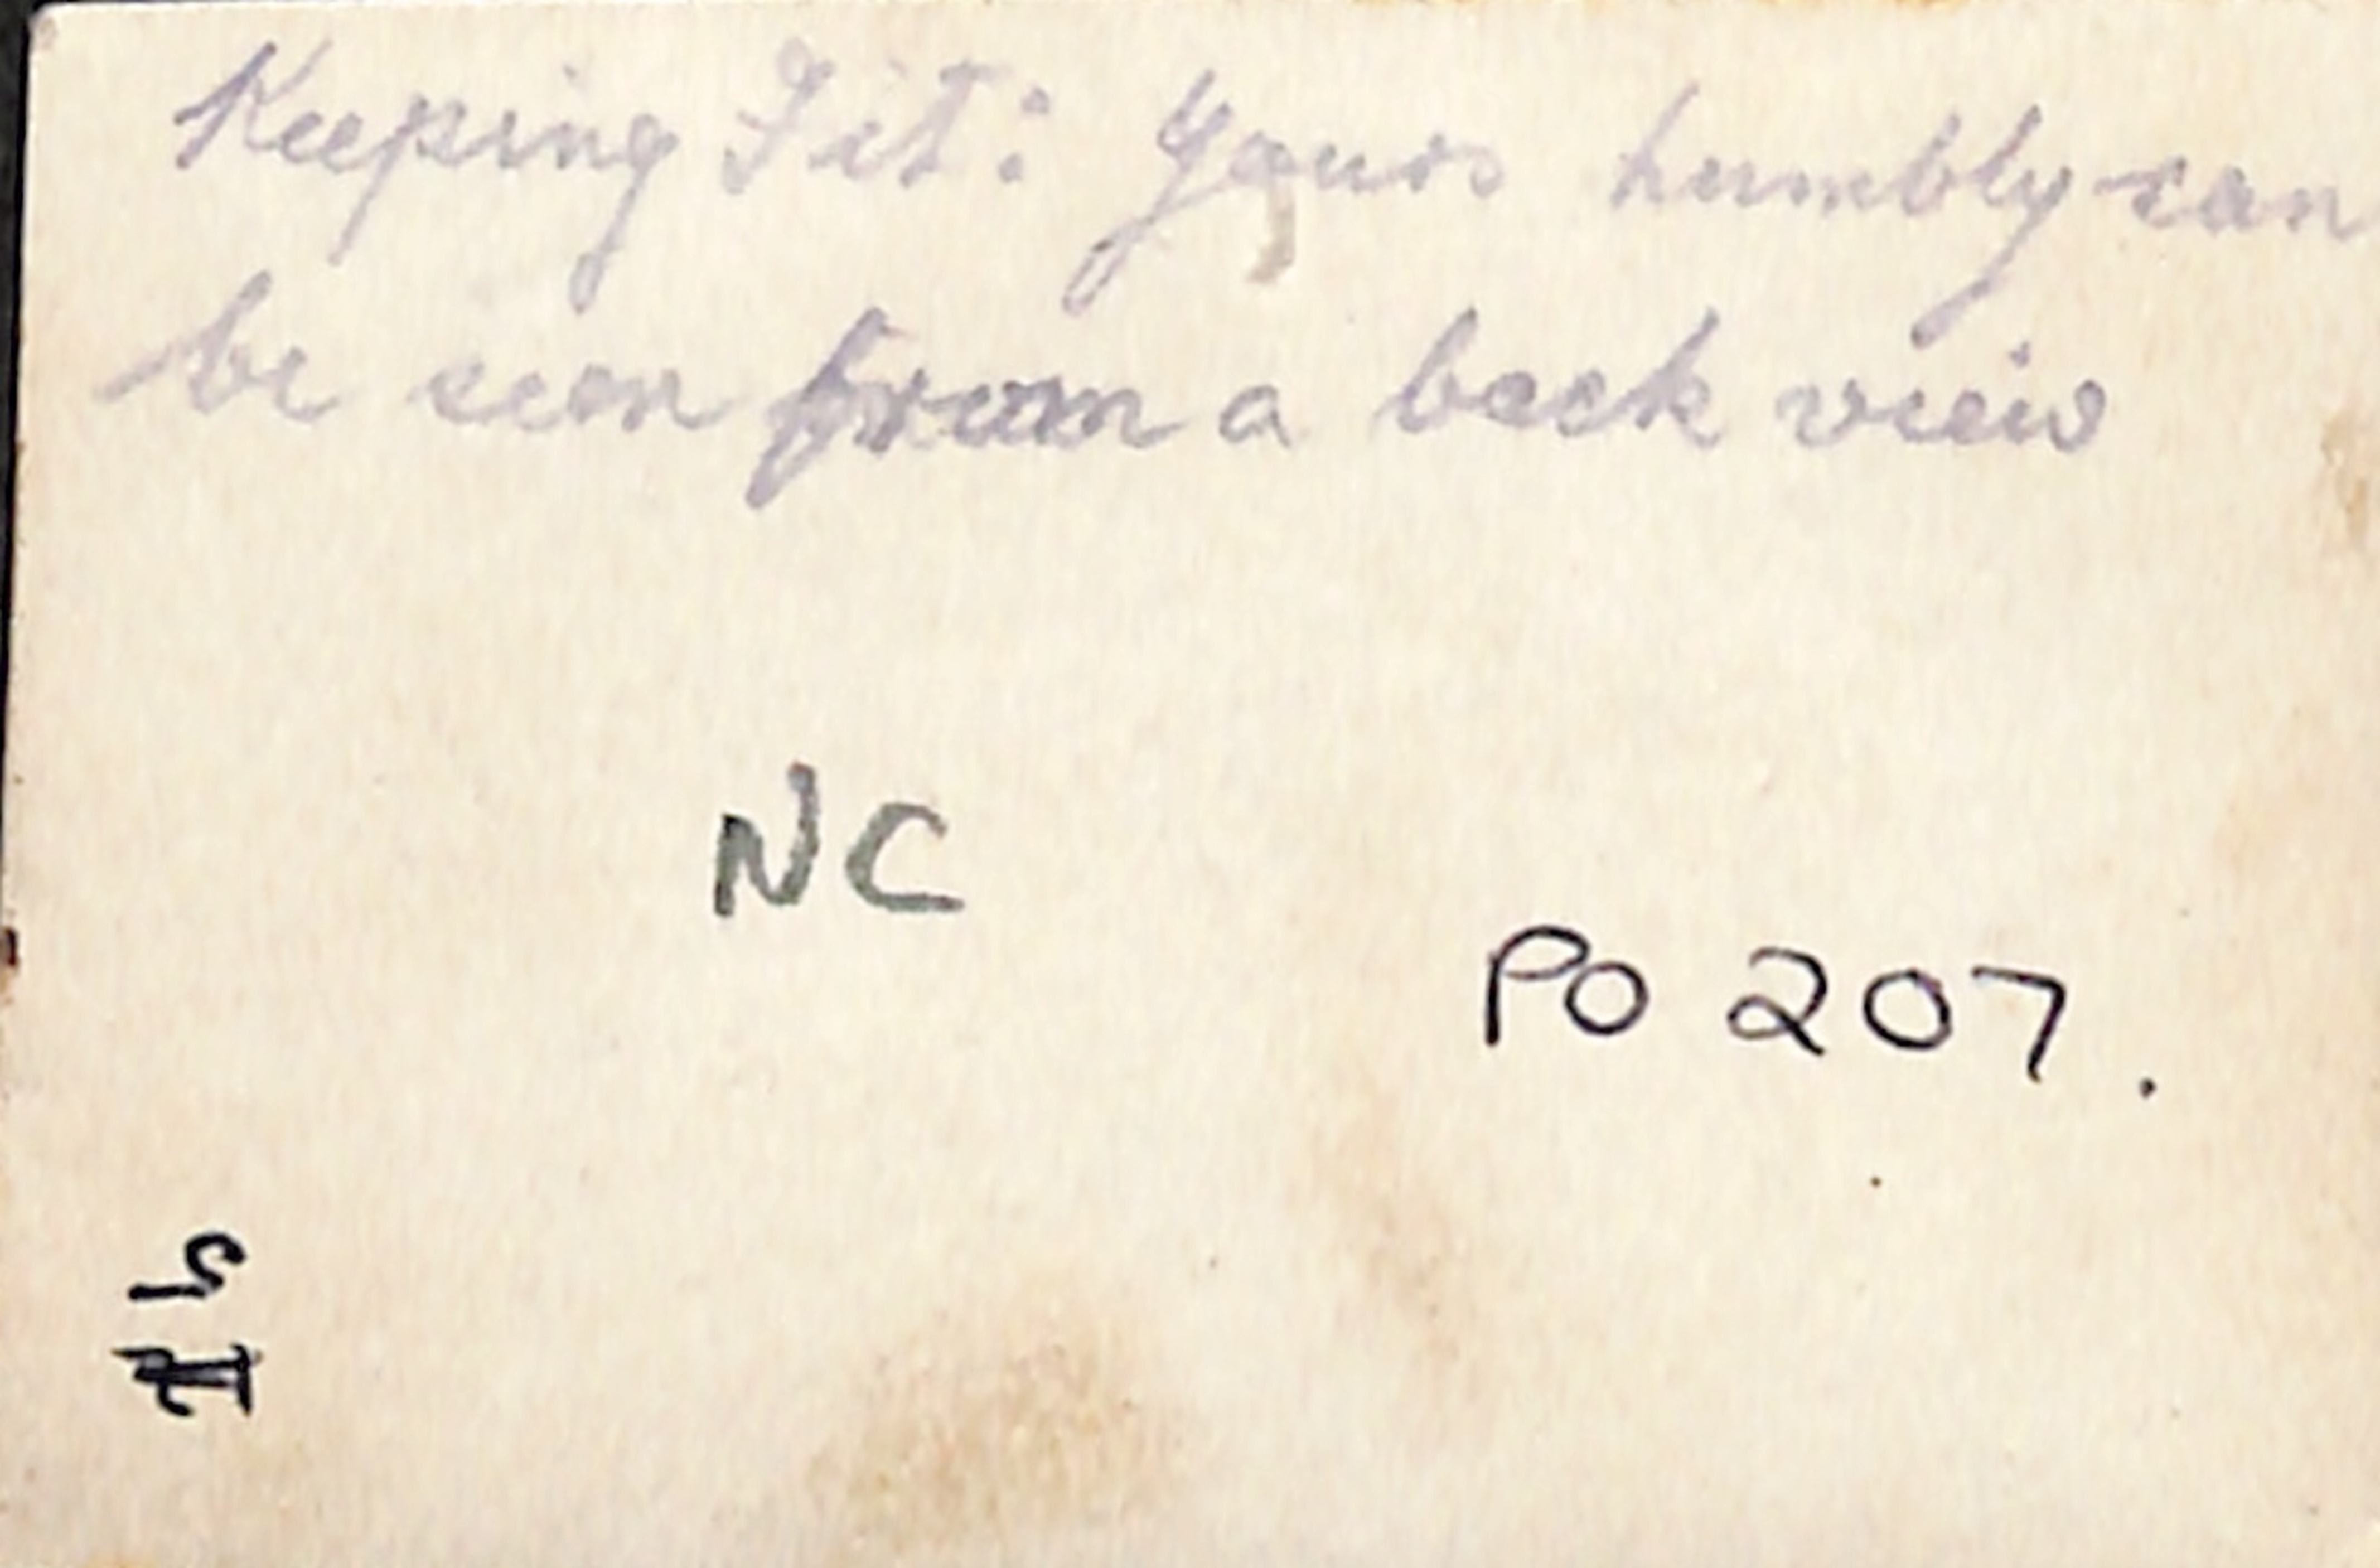 Keeping Fit: Yours humbly can
be seen from a back view
NC
PO 207.